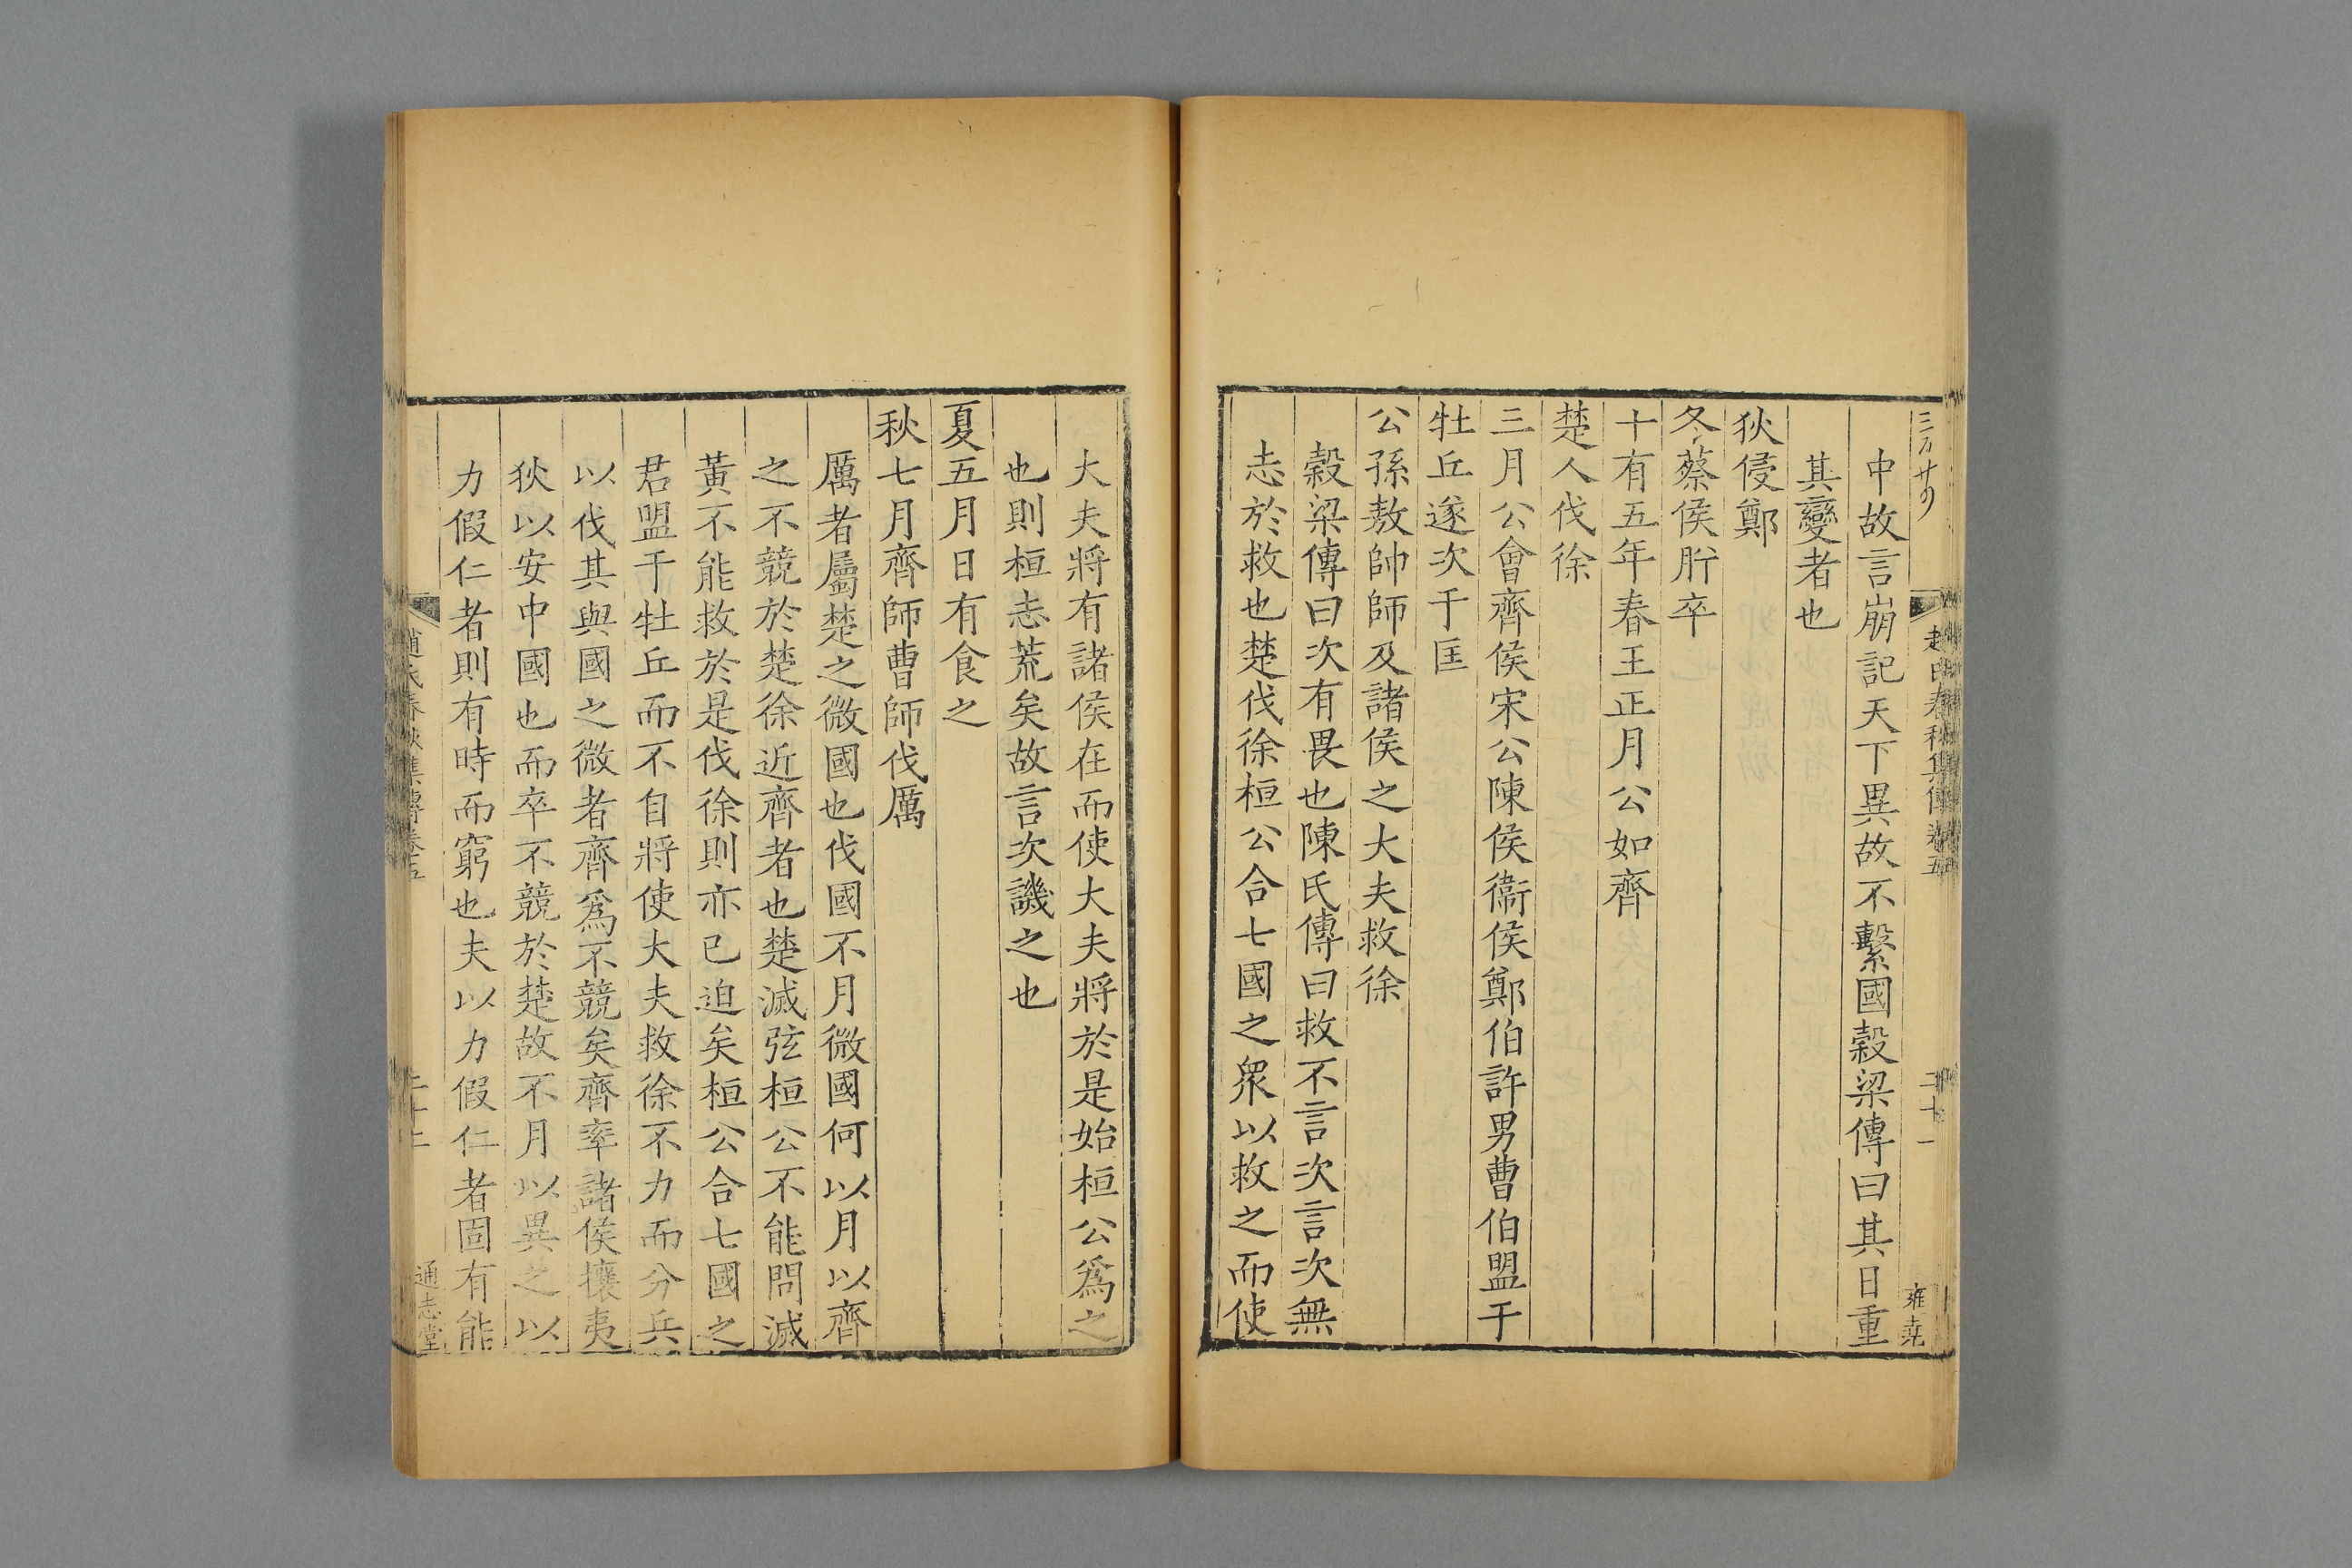 中故言崩記天下異故不繫國穀梁傳曰其日重
其變者也
狄侵鄭
冬蔡侯肸卒
十有五年春王正月公如齊
楚人伐徐
三月公會齊侯宋公陳侯衞侯鄭伯許男曹伯盟于
牡丘遂次于匡
公孫敖帥師及諸侯之大夫救徐
穀梁傳曰次有畏也陳氏傳曰救不言次言次無
志於救也楚伐徐桓公合七國之衆以救之而使
大夫將有諸侯在而使大夫將於是始桓公爲之
也則桓志荒矣故言次譏之也
夏五月日有食之
秋七月齊師曹師伐厲
厲者屬楚之微國也伐國不月微國何以月以齊
之不競於楚徐近齊者也楚滅弦桓公不能問滅
黃不能救於是伐徐則亦已迫矣桓公合七國之
君盟于牡丘而不自將使大夫救徐不力而分兵
以伐其與國之微者齊爲不競矣齊率諸侯攘夷
狄以安中國也而卒不競於楚故不月以異之以
力假仁者則有時而窮也夫以力假仁者固有能
趙氏春秋集傳卷五
二十一
雍堯
趙氏春秋集傳卷五
二十二
通志堂